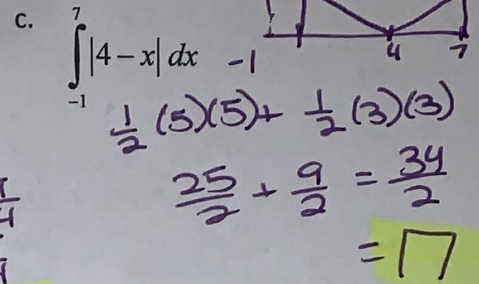 c. ∫₋₁⁷ |4 − x| dx
-1 4 7
1/2 (5)(5) + 1/2 (3)(3)
25/2 + 9/2 = 34/2
= 17